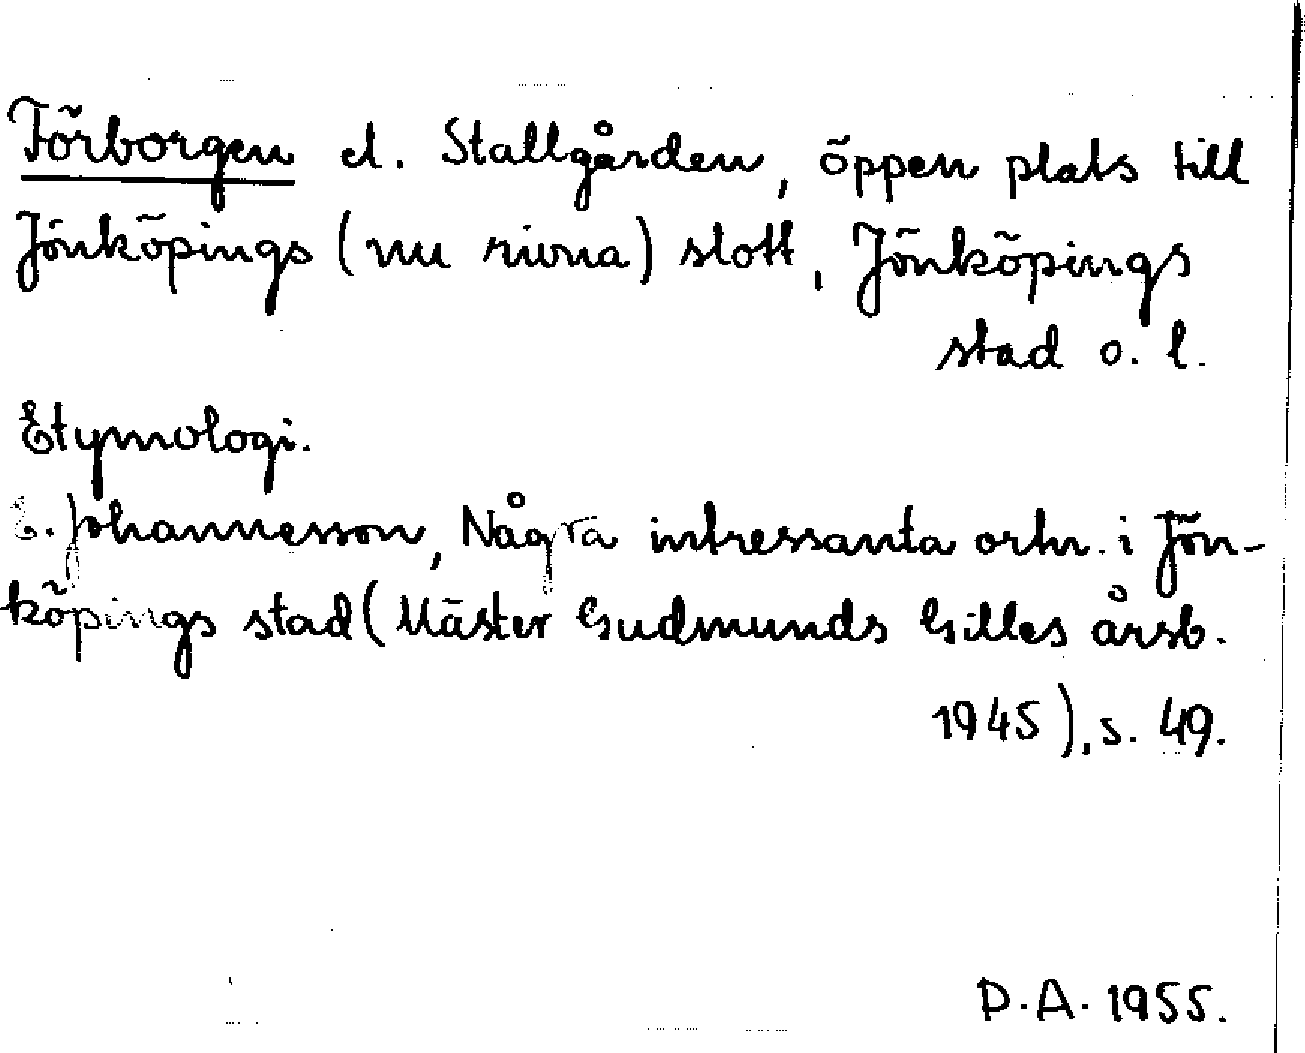 Förborgen el. Stallgården, öppen plats till
Jönköpings (nu rivna) slott, Jönköpings
stad o. l.
Etymologi.
E. Johannesson, Några intressanta ortn. i Jön-
köpings stad (Mäster Gudmunds Gilles årsb.
1945), s. 49.
D.A. 1955.